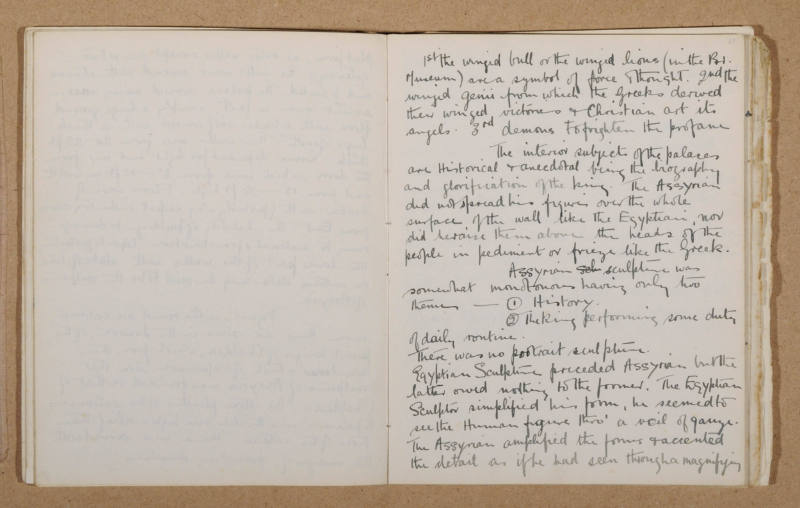 1st the winged bull or the winged lions (in the Brit.
Museum) are a symbol of force & thought. 2nd the
winged genii from which the Greeks derived
their winged victories & Christian art its
angels. 3rd demons to frighten the profane
The interior subjects of the palaces
are Historical & anecdotal being the biography
and glorification of the king. The Assyrian
did not spread his figures over the whole
surface of the wall like the Egyptian, nor
did he raise them above the heads of the
people in pediment or frieze like the Greek.
Assyrian sculpture was
somewhat monotonous having only two
themes — ① History.
② The king performing some duty
of daily routine.
There was no portrait sculpture.
Egyptian Sculpture preceded Assyrian but the
latter owed nothing to the former. The Egyptian
Sculptor simplified his form, he seemed to
see the Human figure thro' a veil of gauze.
The Assyrian amplified the forms & accented
the detail as if he had seen through a magnifying